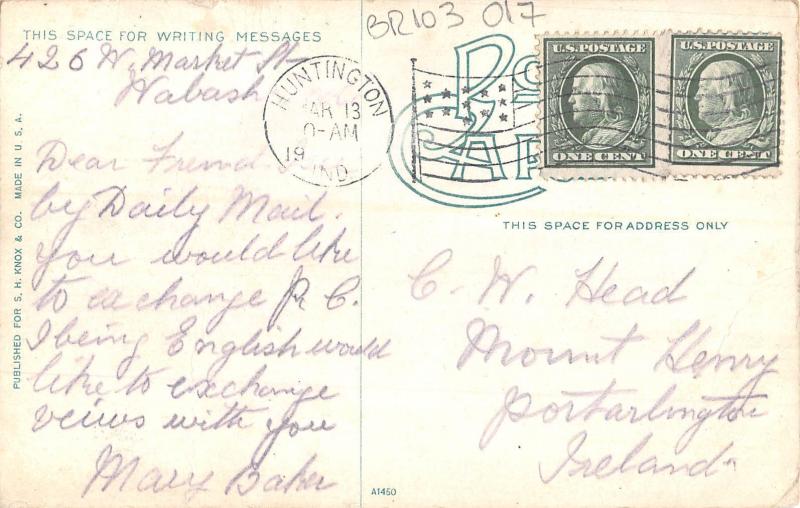 BR103 017
THIS SPACE FOR WRITING MESSAGES
426 W. Market St
Wabash
Dear Friend
by Daily Mail.
you would like
to exchange P. C.
I being English would
like to exchange
veiws with you
Mary Baker
PUBLISHED FOR S. H. KNOX & CO. MADE IN U. S. A.
HUNTINGTON
AR 13
0-AM
19
IND
U.S. POSTAGE
ONE CENT
U.S. POSTAGE
ONE CENT
THIS SPACE FOR ADDRESS ONLY
C. W. Head
Mount Henry
Portarlington
Ireland
A1450